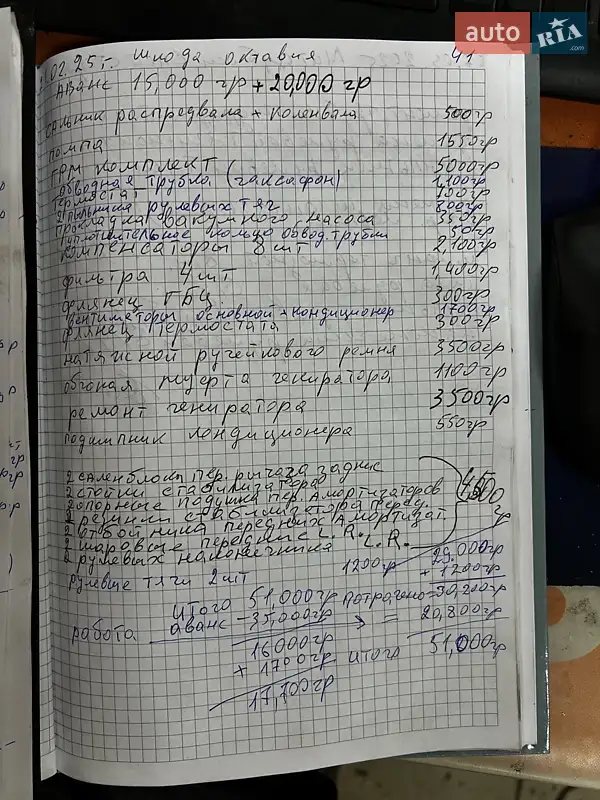 auto RIA
.02.25г. шкода октавия 41
Аванс 15,000 гр + 20,000 гр
сальник распредвала + коленвала 500гр
помпа 1550гр
ГРМ комплект 5000гр
обводная трубка (саксафон) 1,100гр
термостат 700гр
2 пыльника рулевых тяг 800гр
прокладка вакумного насоса 350гр
уплотнительное кольцо обвод. трубки 50гр
компенсаторы 8шт 2,100гр
фильтра 4шт 1,400гр
флянец ГБЦ 300гр
вентиляторы основной + кондиционер 1700гр
флянец термостата 300гр
натяжной ручейкового ремня 3500гр
обгоная муфта гениратора 1100гр
ремонт гениратора 3,500гр
подшипник кондиционера 550гр
2 саленблока пер. рычага задние
2 стойки стабилизатора
2 опорные подушки пер. Амортизаторов
2 резинки стабилизатора перед.
2 отбойника передних Амортизат.
2 шаровые передние L.R.
2 рулевых наконечника L.R.
рулевые тяги 2шт 1200гр
29.000гр
+ 1200гр
итого 51,000гр потрачено = 30,200гр
работа аванс - 35,000гр = 20,800гр
16000гр итого 51,000гр
+ 1700гр
17,700гр